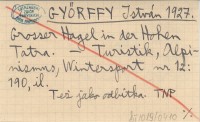 GYÖRFFY István 1927.
Grosser Hagel in der Hohen
Tatra. — Turistik, Alpi-
nismus, Wintersport nr 12:
190, il.
Też jako odbitka TNP